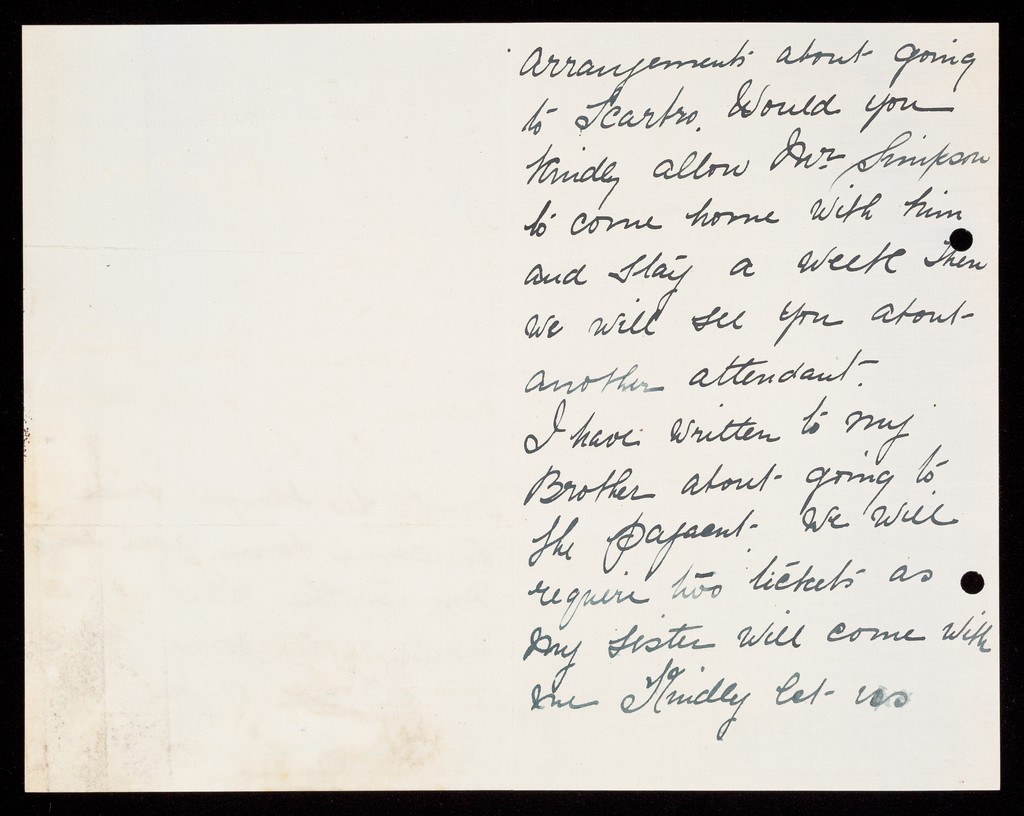 arrangements about going
to Scarbro. Would you
kindly allow Mr. Simpson
to come home with him
and stay a week then
we will see you about
another attendant.
I have written to my
Brother about going to
the Pagaent. We will
require two tickets as
my sister will come with
me Kindly let us